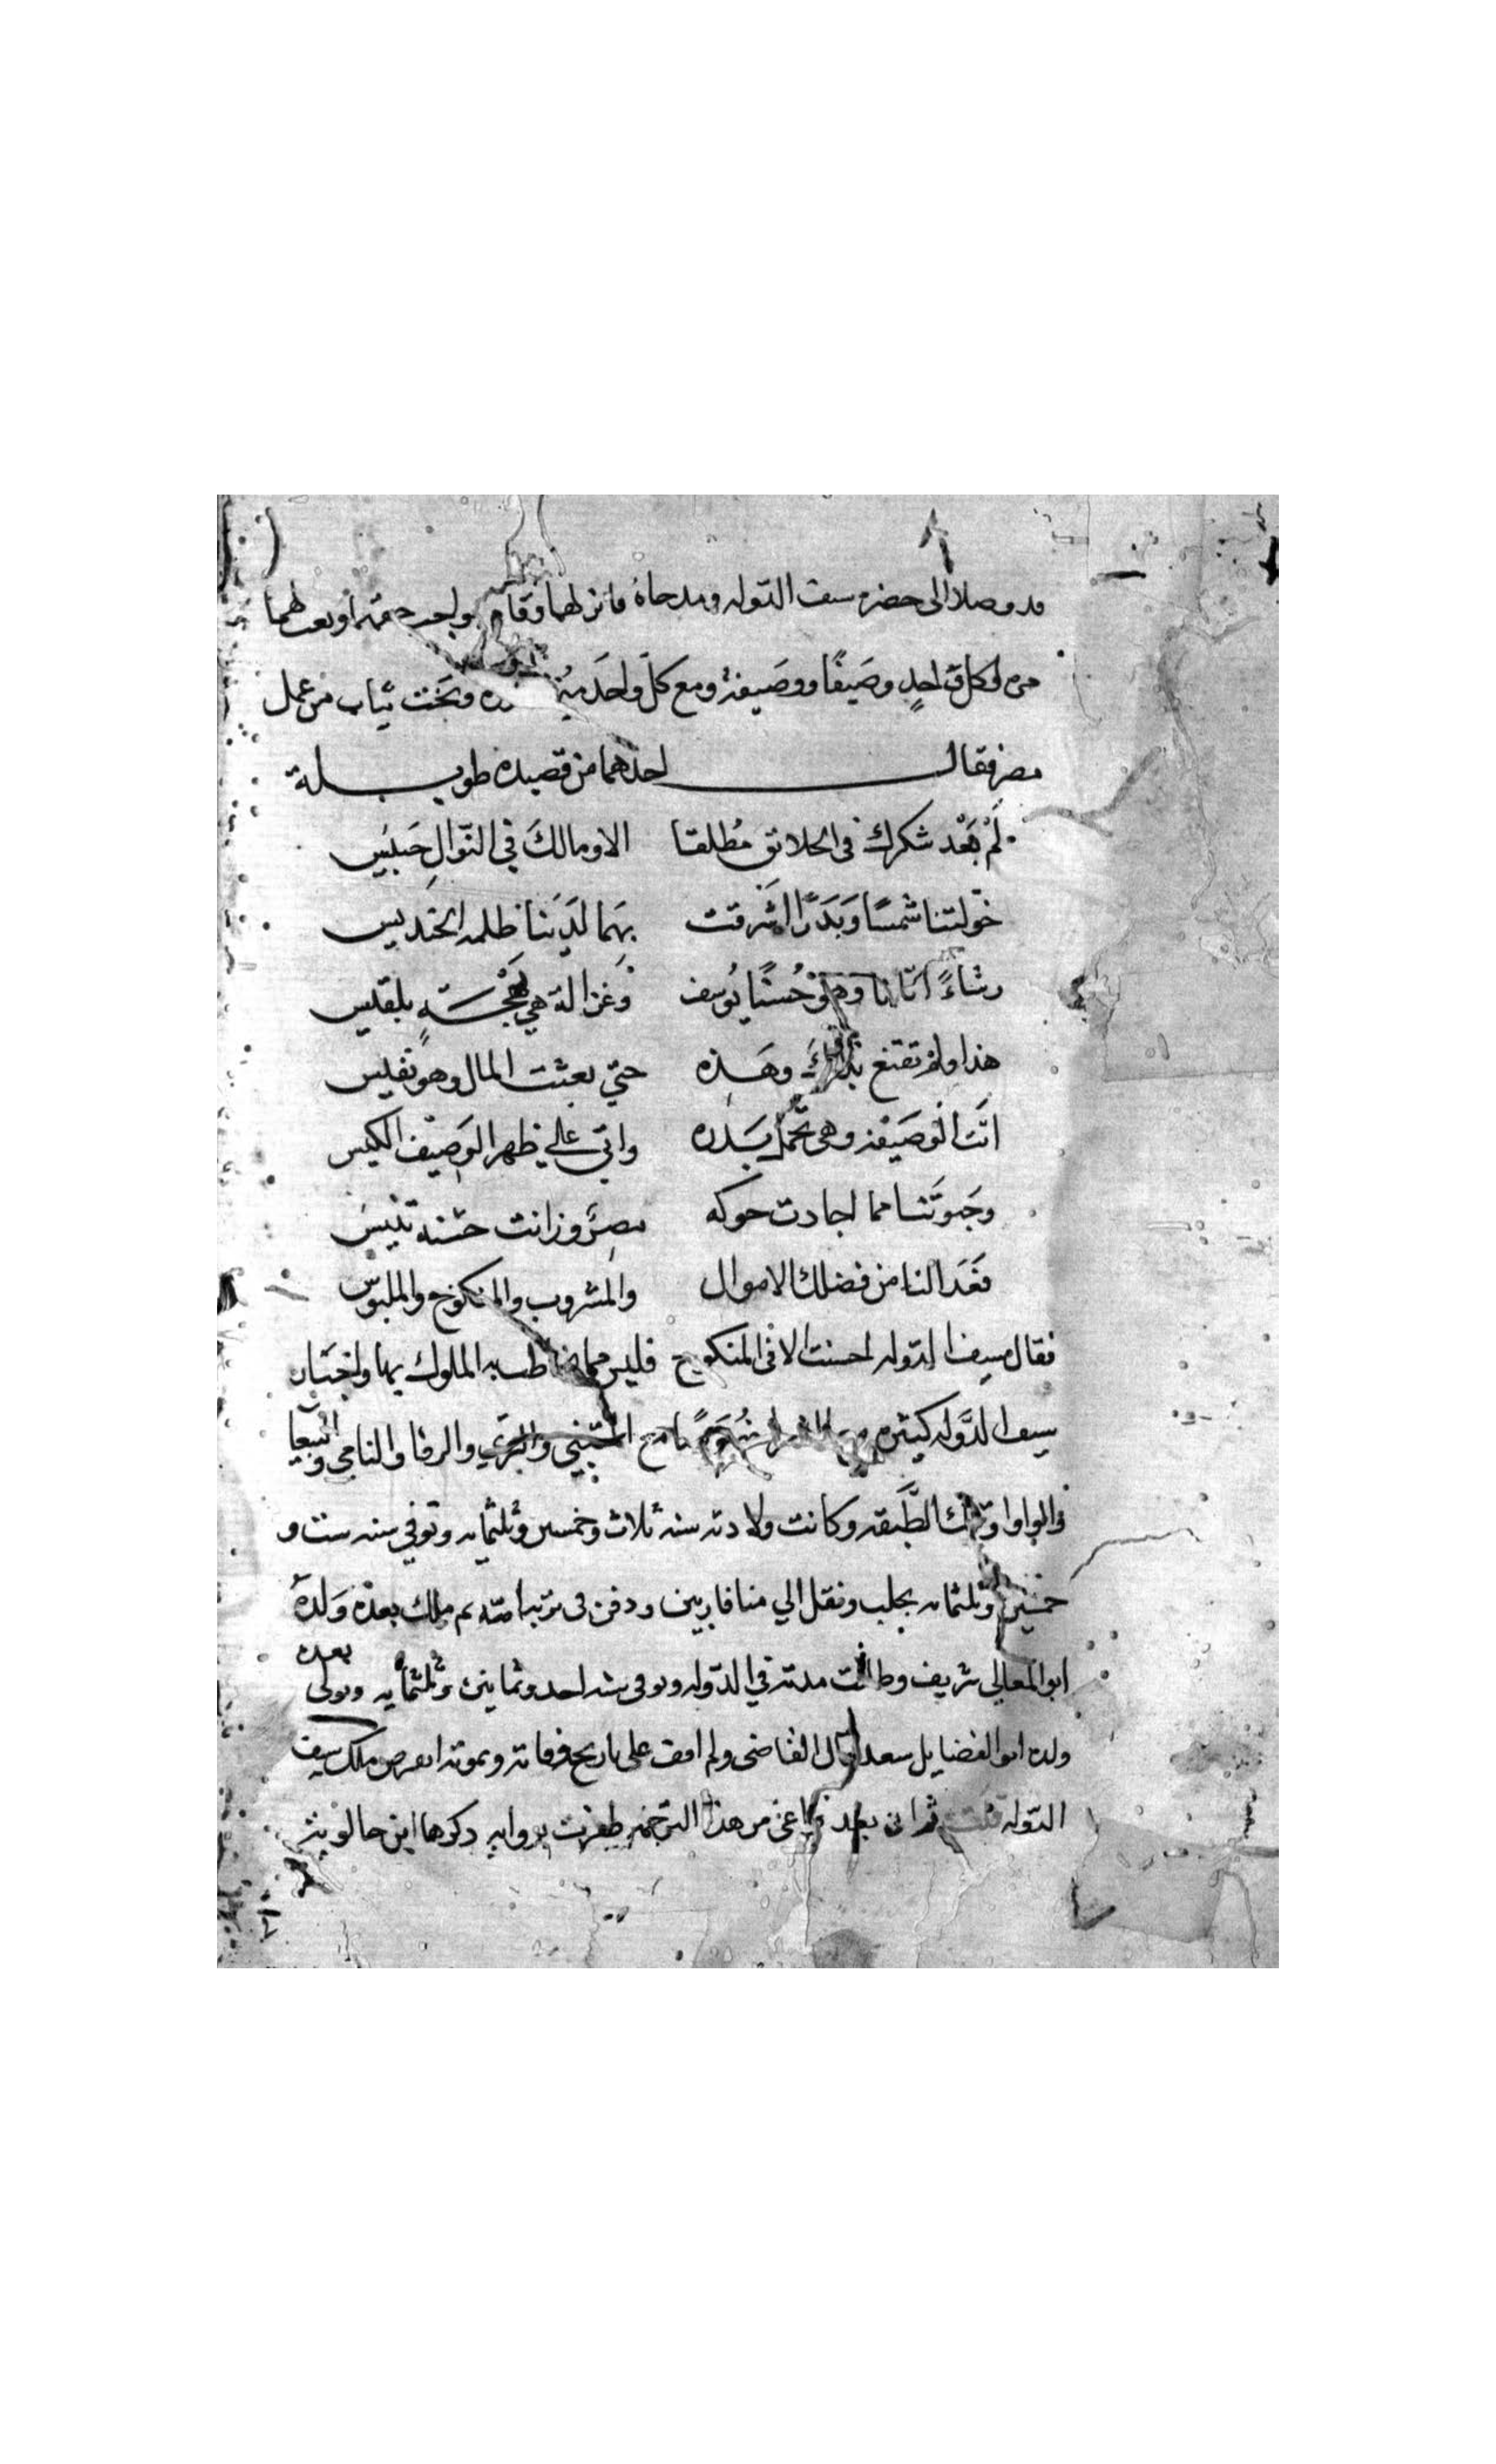 قد وصلا الى حضره سيف الدوله ومدحاه فانزلهما وقام بواجب حقهما وبعث لهما
مره لكل واحدٍ وصَيفًا ووصَيفة ومع كلّ واحَد منهُما بدره وتَخت ثياب من عمل
مصر فقال احدهما من قصيده طويلة
لَمْ يَغْد شكرك في الخلائق مُطلقا الا ومالكَ في النّوالِ حَبيَس
خوّلتنا شمسًا وَبَدرًا اشَرقت بِهَما لَدَينا ظلمه الحَنديس
رشاءً اتانا وهوْ حُسنًا يُوسف وَغزالة هي بَهْجَةٍ بلقيس
هذا ولم تقتنع بذاك وهَذِه حتي بعثت المال وهو نفيس
اتَت الوَصَيفه وهي تحَملُ بَدره واتي علي ظهر الوَصِيْف الكيس
وحَبوتَنا مما اجادت حوكه مِصرٌ وزانت حسْنه تنيسَ
فغَدا لنا من فضلك الاموال والمشروب والمنكوح والملبَوس
فقال سيف الدوله احسنت الا في المنكوح فليس مما يخاطب به الملوك بها واخبَار
سيف الدَّوله كثيره مع الشعرا خُصَوصًا مع المتنبي والسَّري والرفا والنامي والببغا
والواوا وتلك الطَّبقه وكانت ولادته سنه ثلاث وخمسين وثلثمايه وتوفي سنه ست و
خمسين وثلثمايه بحلب ونقل الي ميافارقين ودفن في تربه امه ثم ملك بعدَه وَلدَهُ
ابو المعالي شريف وطالت مدته في الدّوله وتوفي سنه احد وثمانين وثلثمايه وتولى بعده
ولده ابو الفضايل سعد قال القاضى ولم اقف على تاريخ وفاته وبموته انقرض ملك سيف
الدّوله قلت ثم ان بعد فراغي من هذا الترجمه ظفرت بروايه ذكرها ابن خالويه